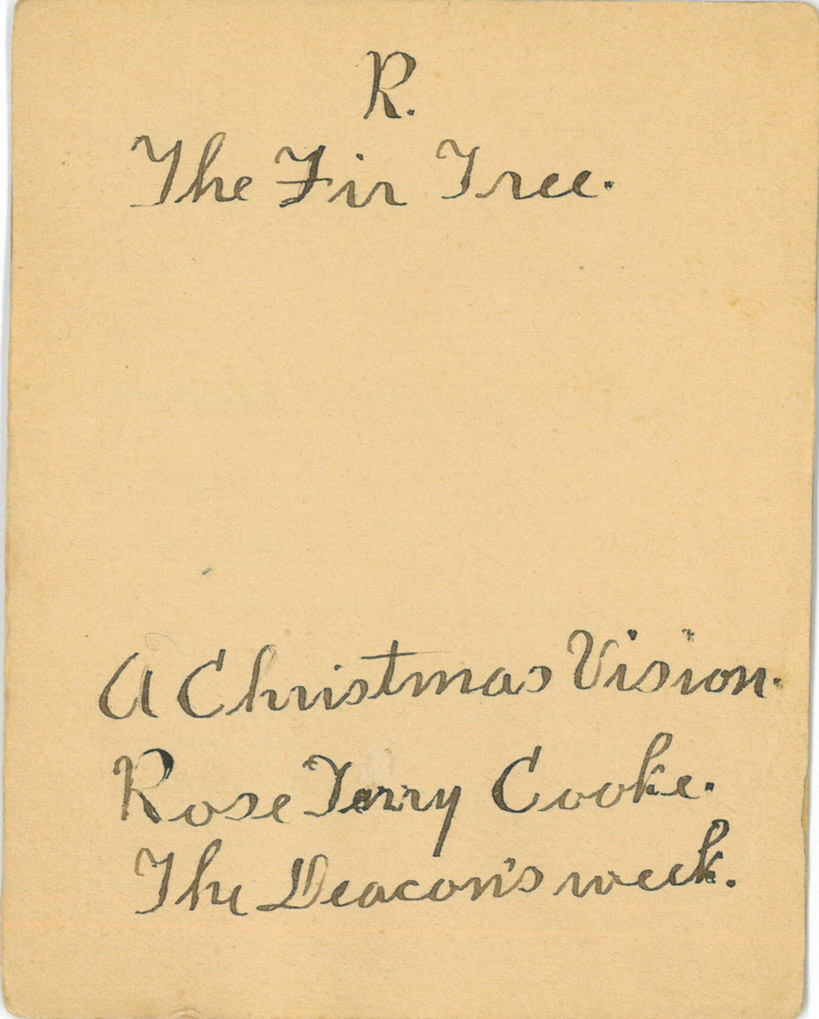 R.
The Fir Tree.
A Christmas Vision.
Rose Terry Cooke.
The Deacon's week.